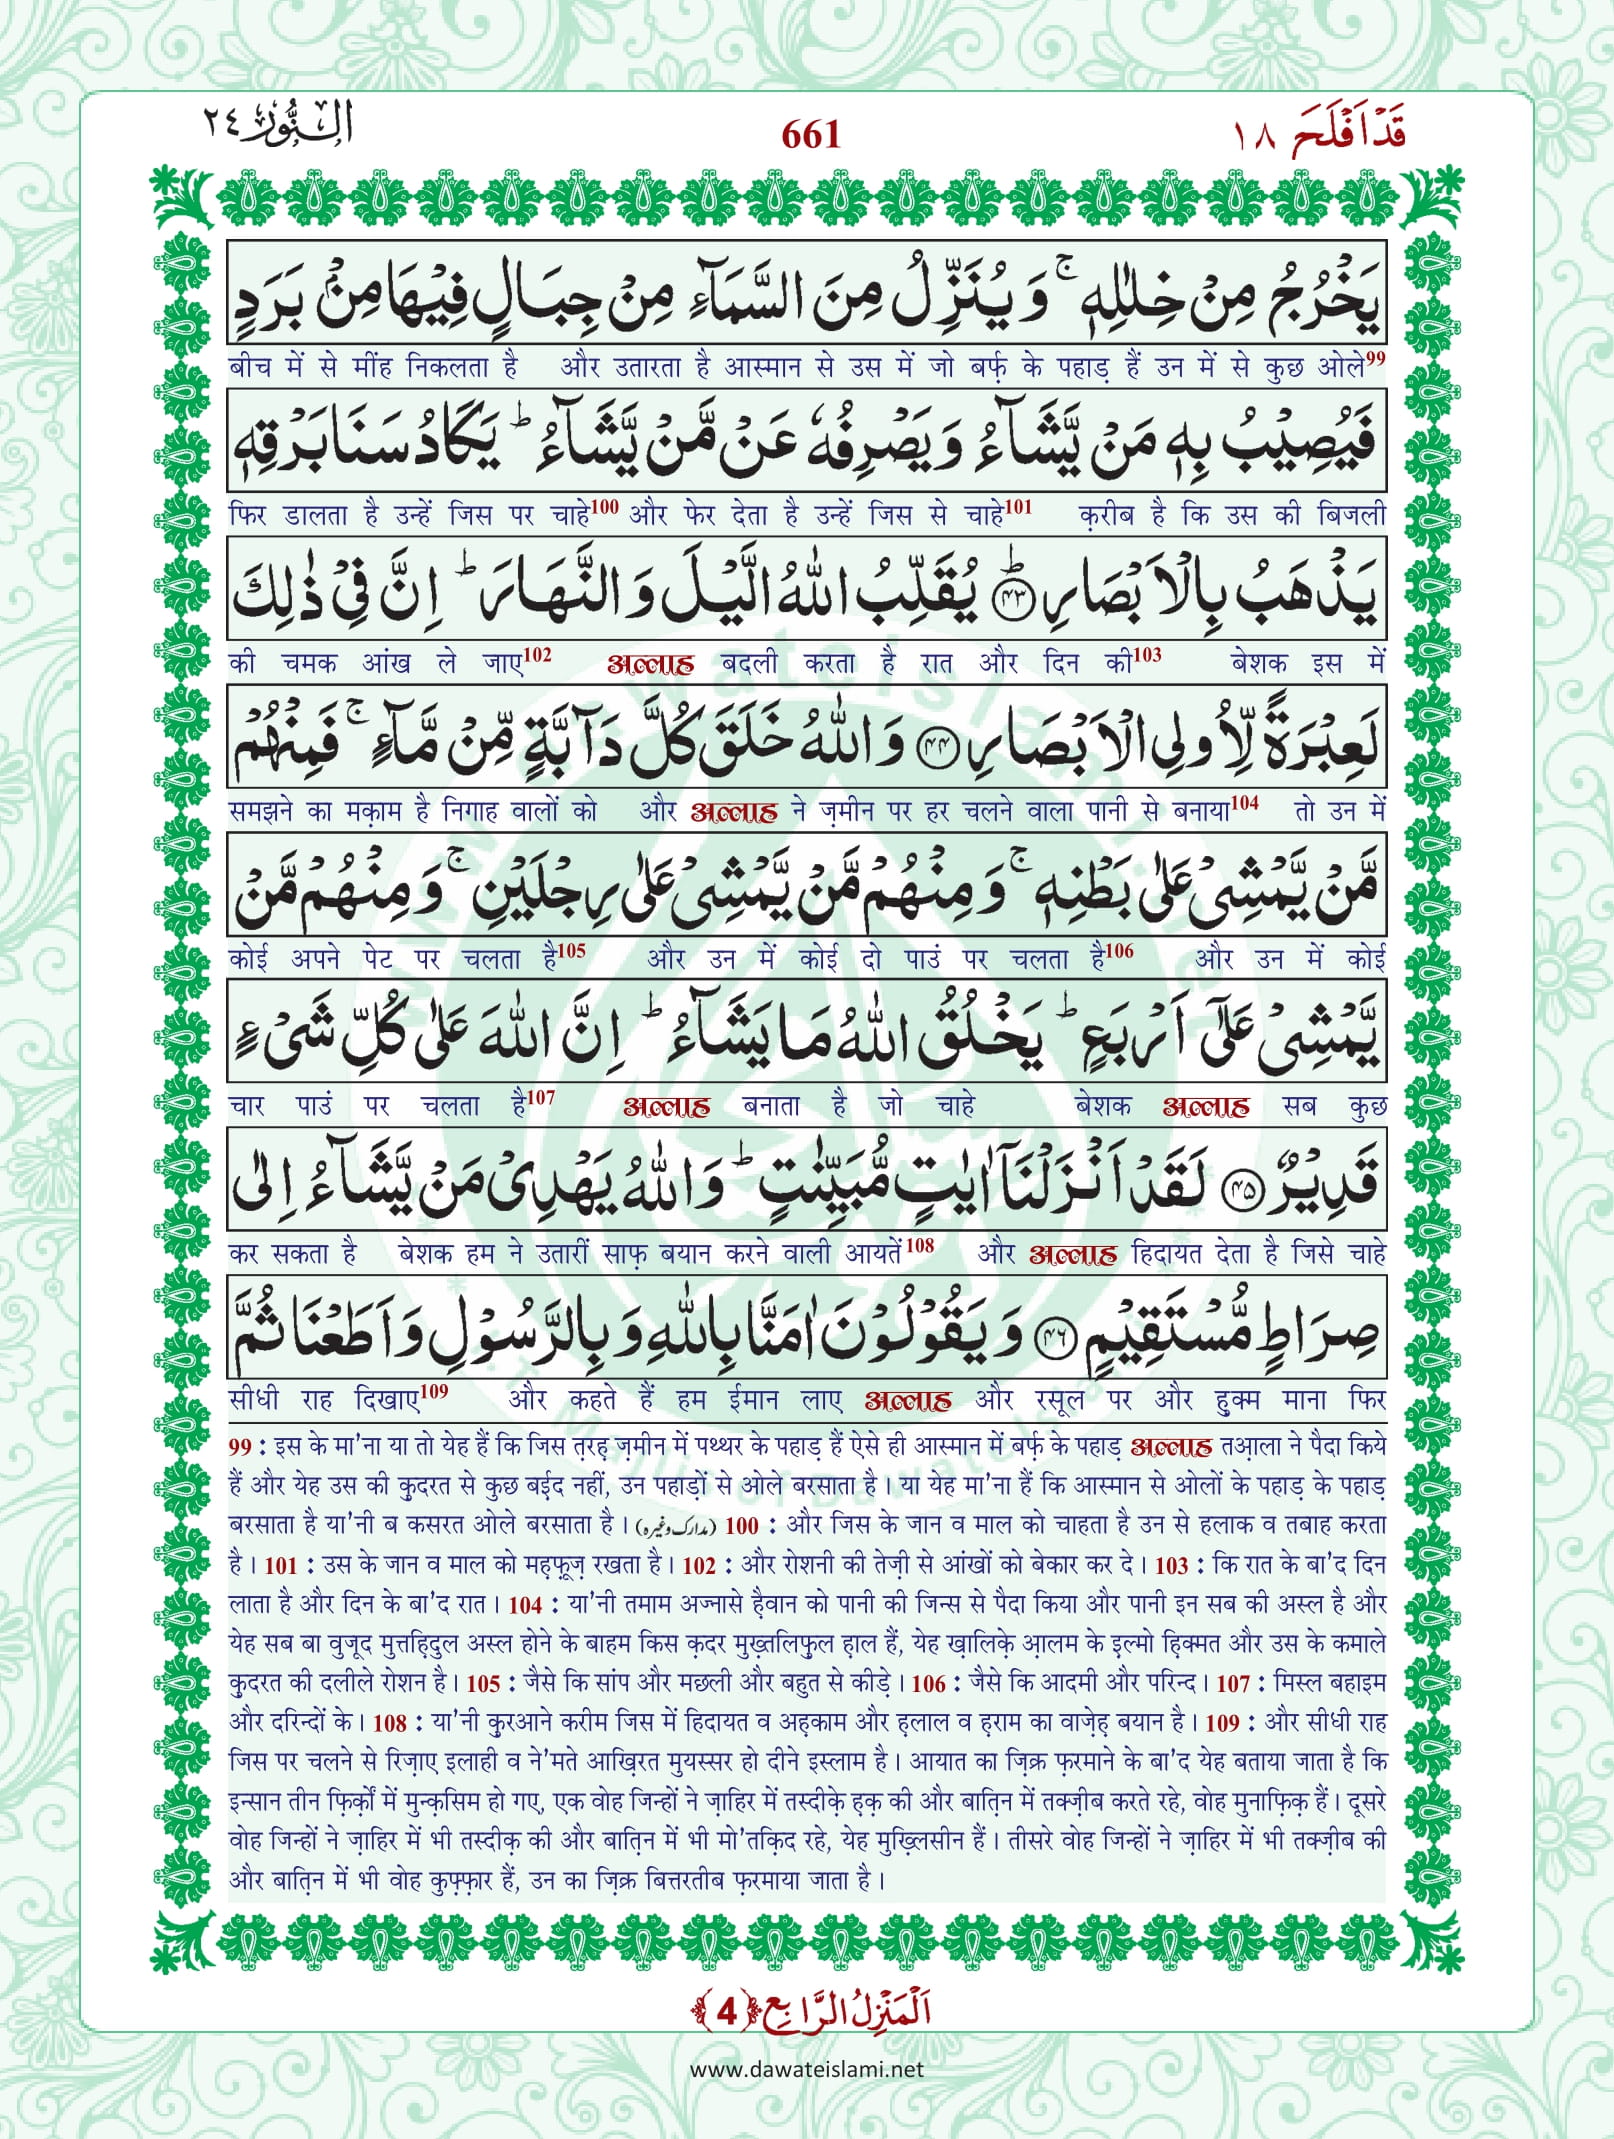 قَدْ اَفْلَحَ ١٨
661
اَلنُّوْر ٢٤
يَخْرُجُ مِنْ خِلٰلِهٖ ۚ وَ يُنَزِّلُ مِنَ السَّمَآءِ مِنْ جِبَالٍ فِيْهَا مِنْۢ بَرَدٍ
बीच में से मींह निकलता है और उतारता है आस्मान से उस में जो बर्फ़ के पहाड़ हैं उन में से कुछ ओले99
فَيُصِيْبُ بِهٖ مَنْ يَّشَآءُ وَ يَصْرِفُهٗ عَنْ مَّنْ يَّشَآءُ ؕ يَكَادُ سَنَا بَرْقِهٖ
फिर डालता है उन्हें जिस पर चाहे100 और फेर देता है उन्हें जिस से चाहे101 क़रीब है कि उस की बिजली
يَذْهَبُ بِالْاَبْصَارِ ؕ﴿۴۳﴾ يُقَلِّبُ اللّٰهُ الَّيْلَ وَ النَّهَارَ ؕ اِنَّ فِيْ ذٰلِكَ
की चमक आंख ले जाए102 अल्लाह बदली करता है रात और दिन की103 बेशक इस में
لَعِبْرَةً لِّاُولِي الْاَبْصَارِ ﴿۴۴﴾ وَ اللّٰهُ خَلَقَ كُلَّ دَآبَّةٍ مِّنْ مَّآءٍ ۚ فَمِنْهُمْ
समझने का मक़ाम है निगाह वालों को और अल्लाह ने ज़मीन पर हर चलने वाला पानी से बनाया104 तो उन में
مَّنْ يَّمْشِيْ عَلٰى بَطْنِهٖ ۚ وَ مِنْهُمْ مَّنْ يَّمْشِيْ عَلٰى رِجْلَيْنِ ۚ وَ مِنْهُمْ مَّنْ
कोई अपने पेट पर चलता है105 और उन में कोई दो पाउं पर चलता है106 और उन में कोई
يَّمْشِيْ عَلٰۤى اَرْبَعٍ ؕ يَخْلُقُ اللّٰهُ مَا يَشَآءُ ؕ اِنَّ اللّٰهَ عَلٰى كُلِّ شَيْءٍ
चार पाउं पर चलता है107 अल्लाह बनाता है जो चाहे बेशक अल्लाह सब कुछ
قَدِيْرٌ ﴿۴۵﴾ لَقَدْ اَنْزَلْنَاۤ اٰيٰتٍ مُّبَيِّنٰتٍ ؕ وَ اللّٰهُ يَهْدِيْ مَنْ يَّشَآءُ اِلٰى
कर सकता है बेशक हम ने उतारीं साफ़ बयान करने वाली आयतें108 और अल्लाह हिदायत देता है जिसे चाहे
صِرَاطٍ مُّسْتَقِيْمٍ ﴿۴۶﴾ وَ يَقُوْلُوْنَ اٰمَنَّا بِاللّٰهِ وَ بِالرَّسُوْلِ وَ اَطَعْنَا ثُمَّ
सीधी राह दिखाए109 और कहते हैं हम ईमान लाए अल्लाह और रसूल पर और हुक्म माना फिर
99 : इस के मा'ना या तो येह हैं कि जिस त़रह़ ज़मीन में पथ्थर के पहाड़ हैं ऐसे ही आस्मान में बर्फ़ के पहाड़ अल्लाह तआ़ला ने पैदा किये
हैं और येह उस की क़ुदरत से कुछ बईद नहीं, उन पहाड़ों से ओले बरसाता है। या येह मा'ना हैं कि आस्मान से ओलों के पहाड़ के पहाड़
बरसाता है या'नी ब कसरत ओले बरसाता है। (مدارک وغیرہ) 100 : और जिस के जान व माल को चाहता है उन से हलाक व तबाह करता
है। 101 : उस के जान व माल को मह़फ़ूज़ रखता है। 102 : और रोशनी की तेज़ी से आंखों को बेकार कर दे। 103 : कि रात के बा'द दिन
लाता है और दिन के बा'द रात। 104 : या'नी तमाम अज्नासे ह़ैवान को पानी की जिन्स से पैदा किया और पानी इन सब की अस्ल है और
येह सब बा वुजूद मुत्तह़िदुल अस्ल होने के बाहम किस क़दर मुख़्तलिफ़ुल ह़ाल हैं, येह ख़ालिक़े आ़लम के इ़ल्मो ह़िक्मत और उस के कमाले
क़ुदरत की दलीले रोशन है। 105 : जैसे कि सांप और मछली और बहुत से कीड़े। 106 : जैसे कि आदमी और परिन्द। 107 : मिस्ल बहाइम
और दरिन्दों के। 108 : या'नी क़ुरआने करीम जिस में हिदायत व अह़काम और ह़लाल व ह़राम का वाज़ेह़ बयान है। 109 : और सीधी राह
जिस पर चलने से रिज़ाए इलाही व ने'मते आख़िरत मुयस्सर हो दीने इस्लाम है। आयात का ज़िक्र फ़रमाने के बा'द येह बताया जाता है कि
इन्सान तीन फ़िर्क़ों में मुन्क़सिम हो गए, एक वोह जिन्हों ने ज़ाहिर में तस्दीक़े ह़क़ की और बात़िन में तक्ज़ीब करते रहे, वोह मुनाफ़िक़ हैं। दूसरे
वोह जिन्हों ने ज़ाहिर में भी तस्दीक़ की और बात़िन में भी मो'तक़िद रहे, येह मुख़्लिसीन हैं। तीसरे वोह जिन्हों ने ज़ाहिर में भी तक्ज़ीब की
और बात़िन में भी वोह कुफ़्फ़ार हैं, उन का ज़िक्र बित्तरतीब फ़रमाया जाता है।
اَلْمَنْزِلُ الرَّابِع ﴿4﴾
www.dawateislami.net